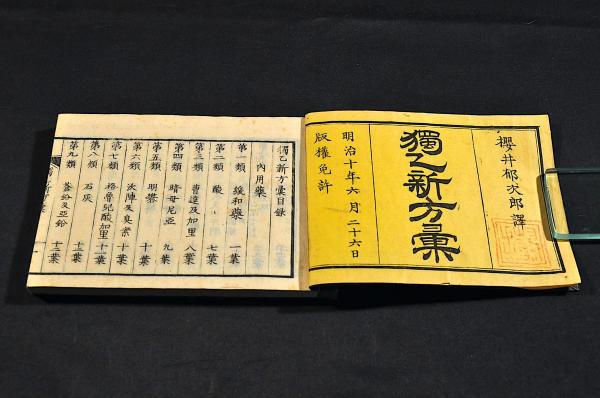 櫻井郁次郎譯
獨乙新方彙
明治十年六月二十六日
版權免許
獨乙新方彙目錄
內用藥
第一類 緩和藥 一葉
第二類 酸 七葉
第三類 曹達及加里 八葉
第四類 暗母尼亞 九葉
第五類 明礬 十葉
第六類 沃陳及臭素 十葉
第七類 格魯兒酸加里 十一葉
第八類 石灰 十二葉
第九類 蒼鉛及亞鉛 十二葉